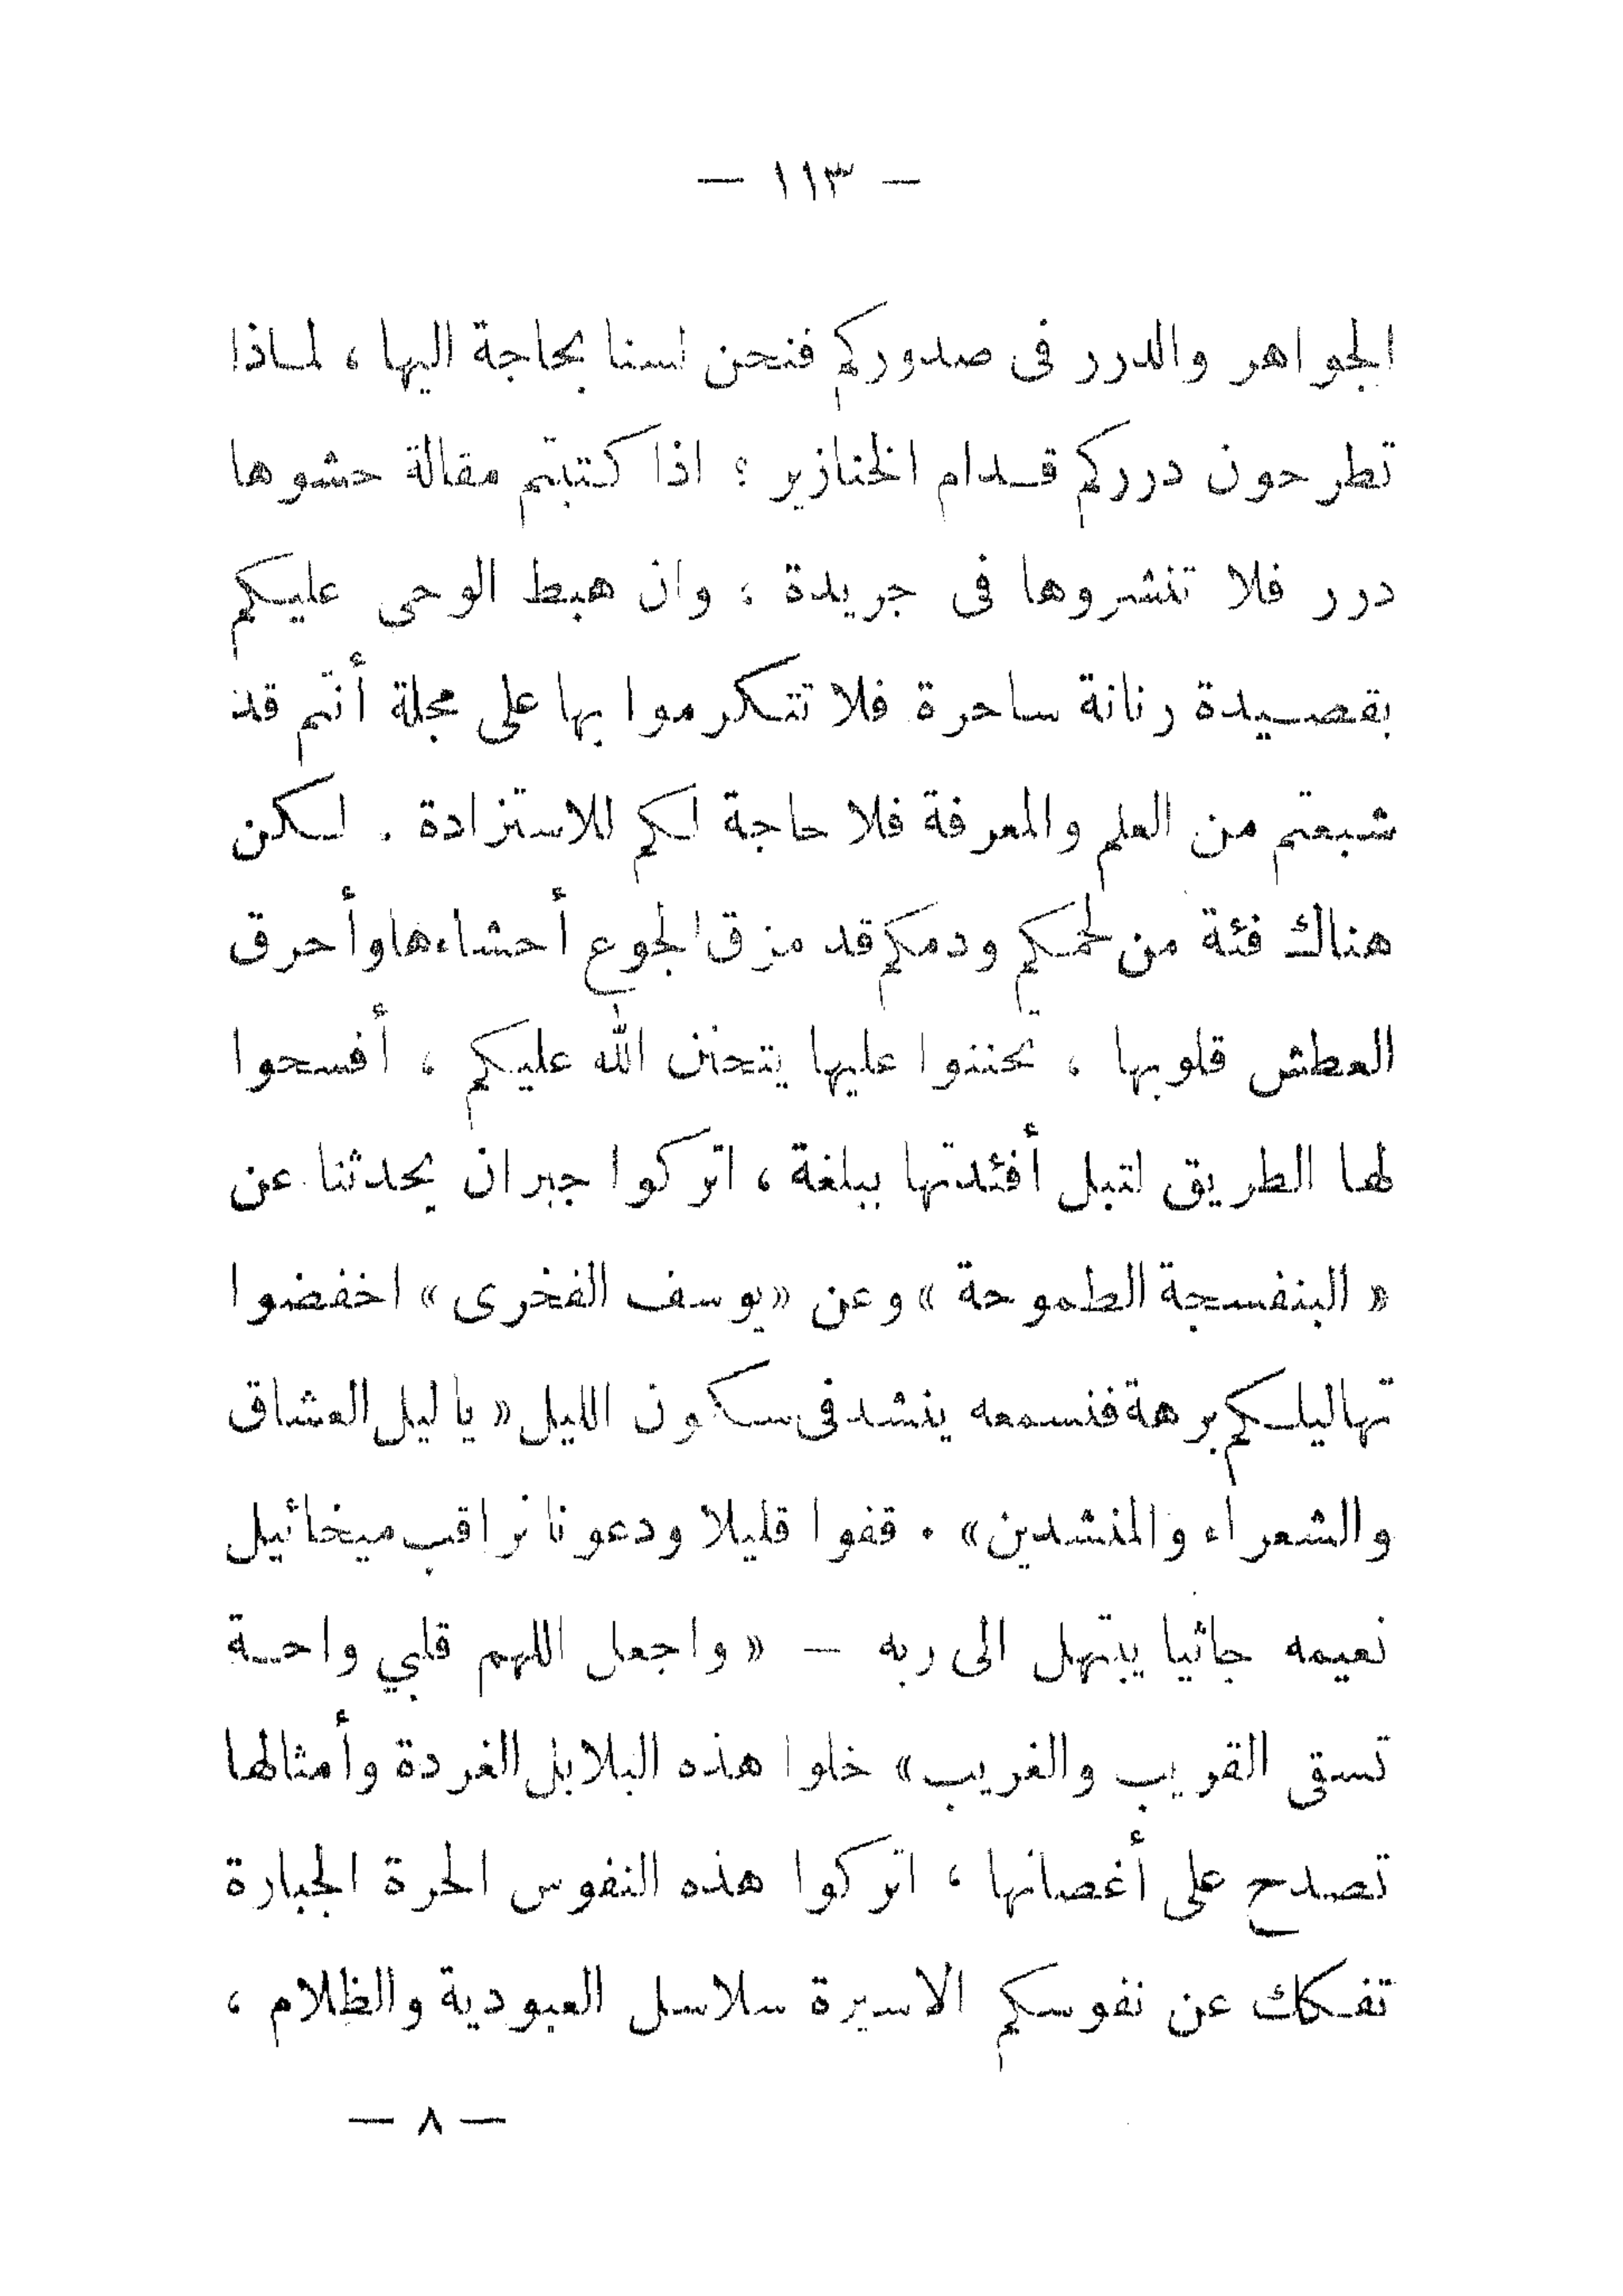 — ١١٣ —
الجواهر والدرر فى صدوركم فنحن لسنا بحاجة اليها ، لماذا
تطرحون درركم قدام الخنازير ؛ اذا كتبتم مقالة حشوها
درر فلا تنشروها فى جريدة ؛ وان هبط الوحى عليكم
بقصيدة رنانة ساحرة فلا تتكرموا بها على مجلة أنتم قد
شبعتم من العلم والمعرفة فلا حاجة لكم للاستزادة . لكن
هناك فئة من لحمكم ودمكم قد مزق الجوع أحشاءها وأحرق
العطش قلوبها ، تحننوا عليها يتحنن الله عليكم ، أفسحوا
لها الطريق لتبل أفئدتها ببلغة ، اتركوا جبران يحدثنا عن
« البنفسجة الطموحة » وعن «يوسف الفخرى» اخفضوا
تهاليلكم برهة فنسمعه ينشد فى سكون الليل « يا ليل العشاق
والشعراء والمنشدين» . قفوا قليلا ودعونا نراقب ميخائيل
نعيمه جاثيا يبتهل الى ربه — « واجعل اللهم قلبي واحة
تسقى القريب والغريب» خلوا هذه البلابل الغردة وأمثالها
تصدح على أغصانها ، اتركوا هذه النفوس الحرة الجبارة
تفكك عن نفوسكم الاسيرة سلاسل العبودية والظلام ،
— ٨ —